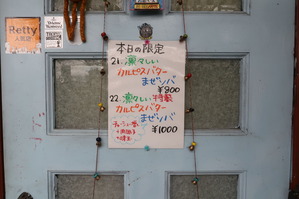 Retty
人気店
本日の限定
21. 凛々しい
カルピスバター
まぜソバ
¥900
22. 凛々しい特製
カルピスバター
まぜソバ
¥1000